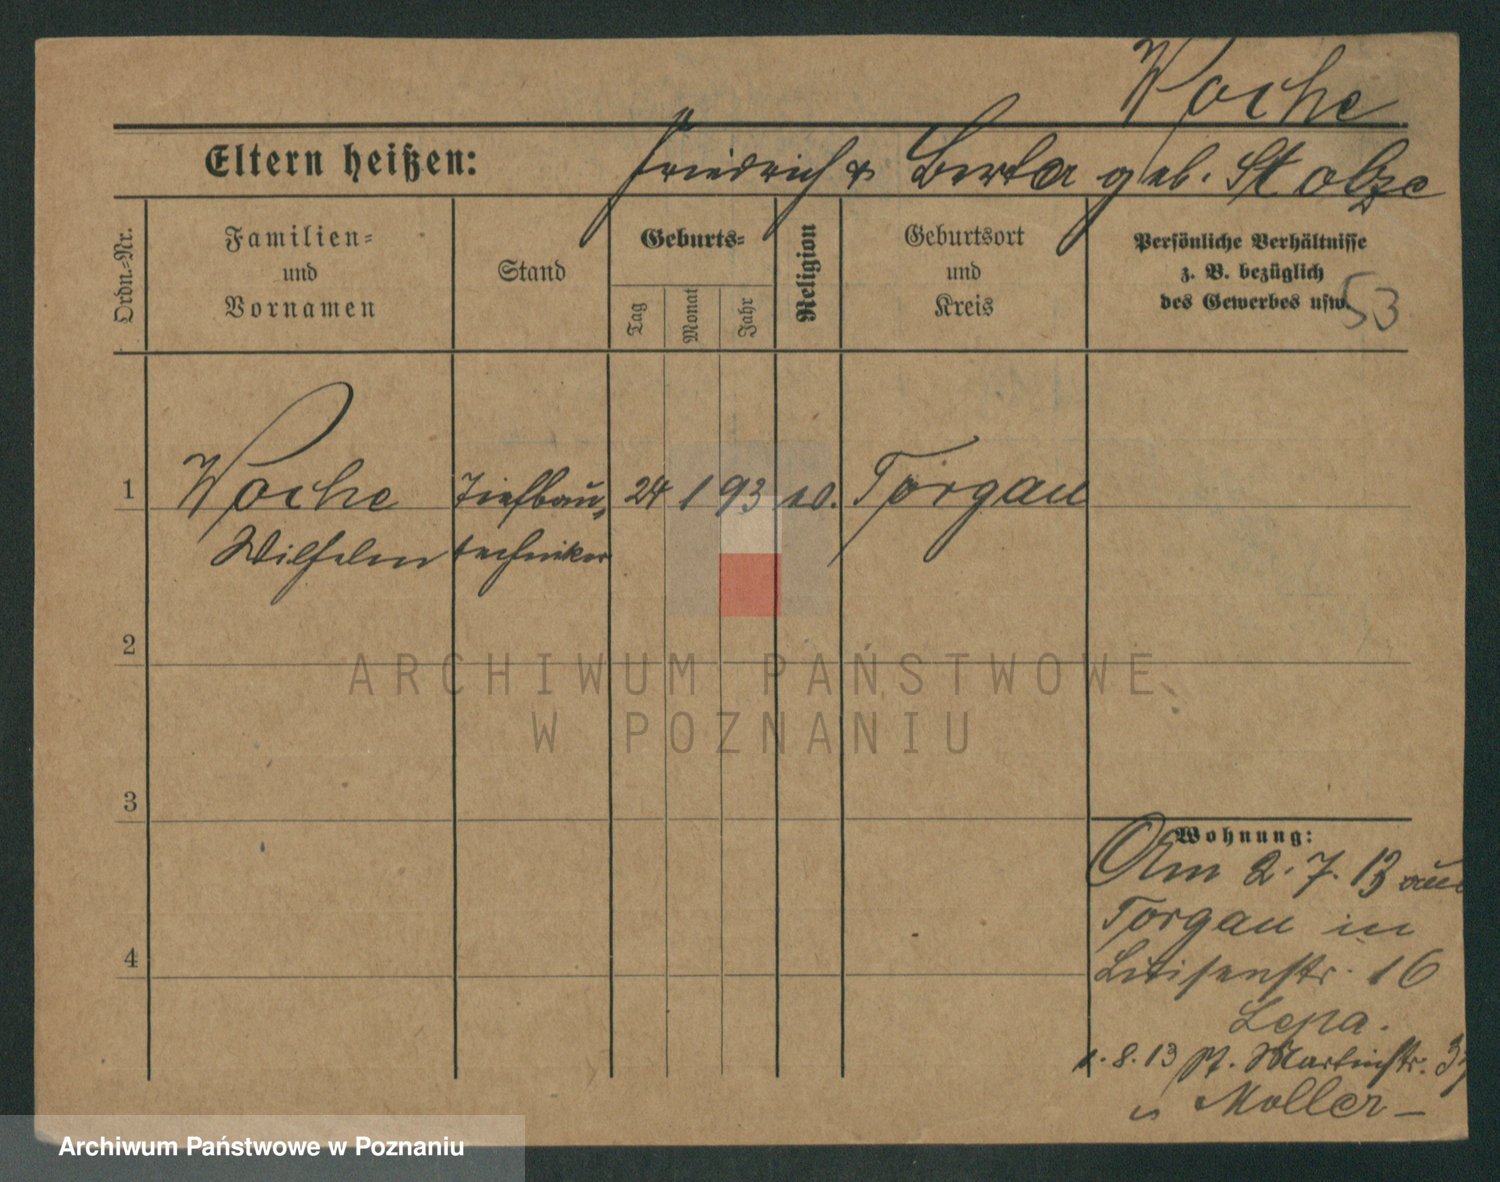 Woche
Eltern heißen: Friedrich & Berta geb. Stolze
Ordn.-Nr.
Familien-
und
Vornamen
Stand
Geburts-
Tag
Monat
Jahr
Religion
Geburtsort
und
Kreis
Persönliche Verhältnisse
z. B. bezüglich
des Gewerbes usw.
53
1 Woche Tiefbau- 24 1 93 ev. Torgau
Wilhelm techniker
2
3
4
Wohnung:
Am 2.7.13 aus
Torgau in
Luisenstr. 16
Lepa.
1.8.13 St. Martinstr. 37
Moller
ARCHIWUM PAŃSTWOWE
W POZNANIU
Archiwum Państwowe w Poznaniu